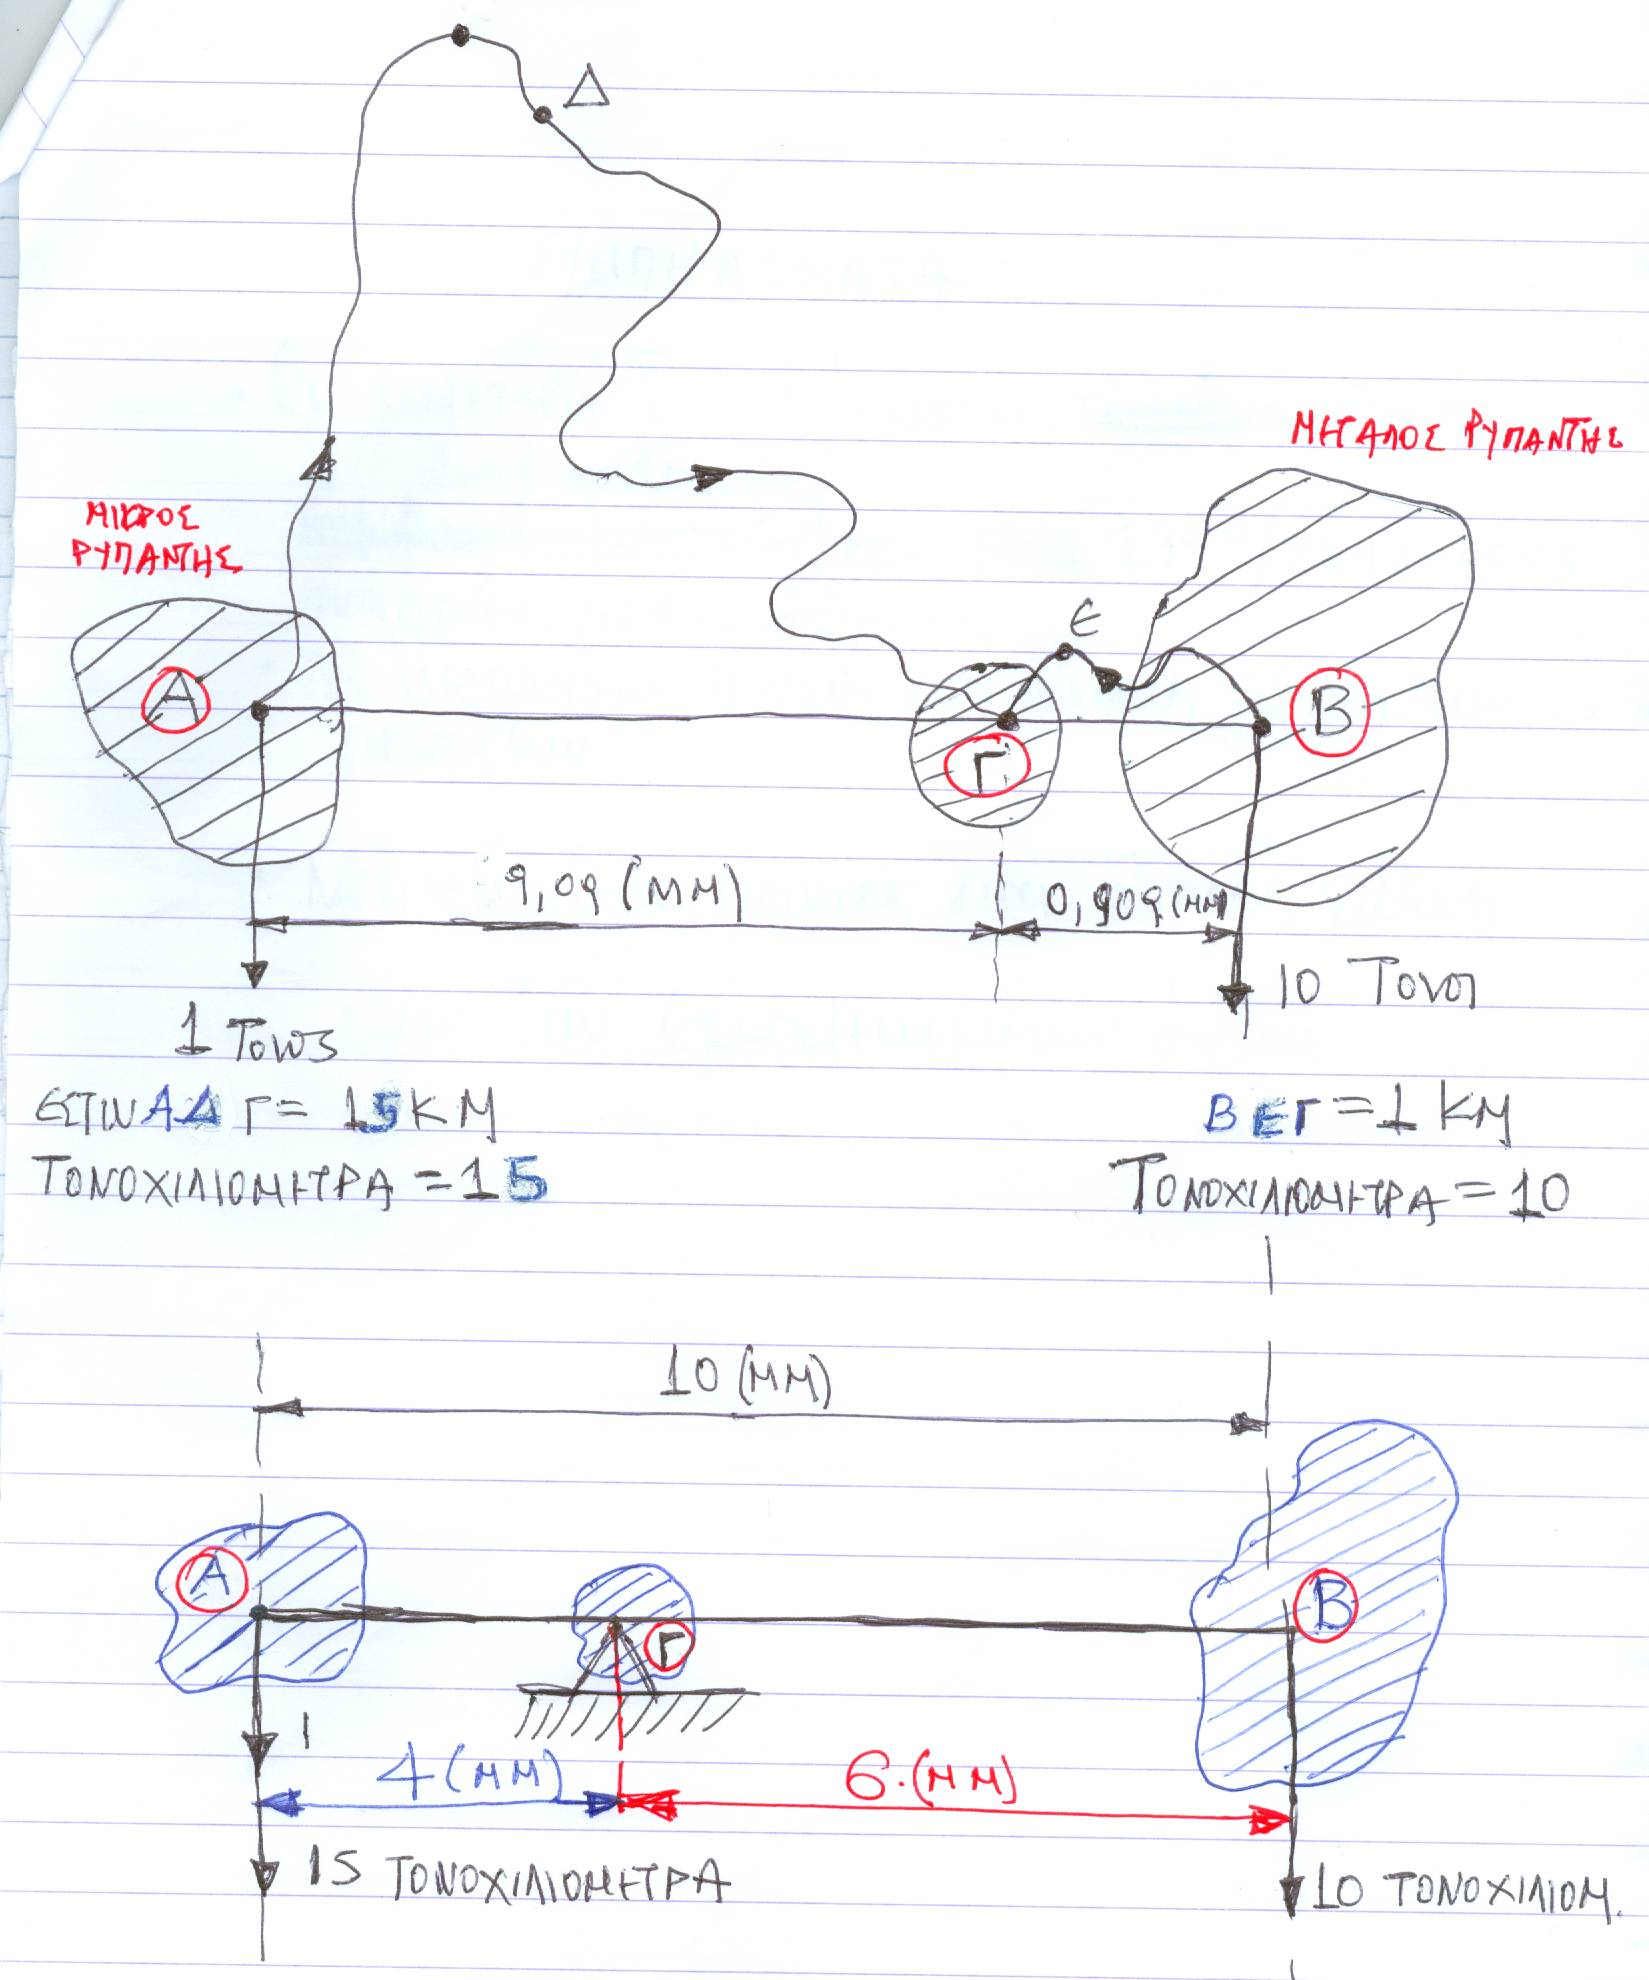 Δ
ΜΕΓΑΛΟΣ ΡΥΠΑΝΤΗΣ
ΜΙΚΡΟΣ
ΡΥΠΑΝΤΗΣ
Ε
Α
Γ
Β
9,09 (ΜΜ)
0,909 (ΜΜ)
1 Τονος
10 Τονοι
ΕΣΤΙΝ ΑΔ Γ = 15 ΚΜ
ΒΕΓ = 1 ΚΜ
ΤΟΝΟΧΙΛΙΟΜΕΤΡΑ = 15
ΤΟΝΟΧΙΛΙΟΜΕΤΡΑ = 10
10 (ΜΜ)
Α
Γ
Β
1
4 (ΜΜ)
6.(ΜΜ)
15 ΤΟΝΟΧΙΛΙΟΜΕΤΡΑ
10 ΤΟΝΟΧΙΛΙΟΜ.